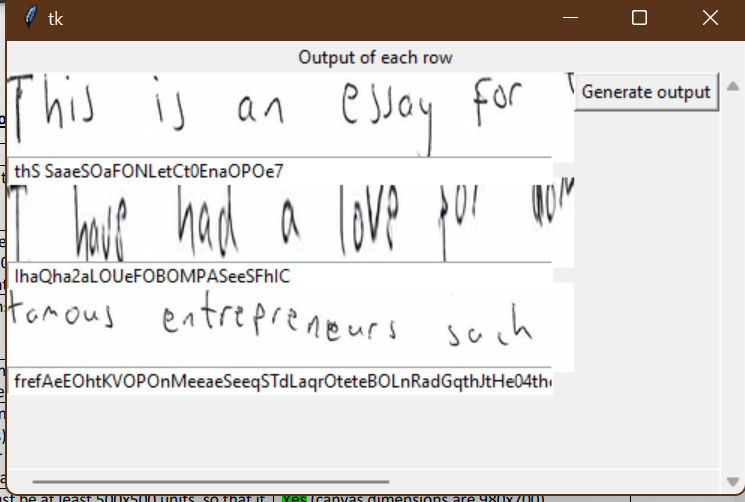 tk
Output of each row
This is an essay for
Generate output
thS SaaeSOaFONLetCt0EnaOPOe7
I have had a love for
IhaQha2aLOUeFOBOMPASeeSFhIC
famous entrepreneurs such
frefAeEOhtKVOPOnMeeaeSeeqSTdLaqrOteteBOLnRadGqthJtHe04the
st be at least 500x500 units, so that it Yes (canvas dimensions are 980x700)